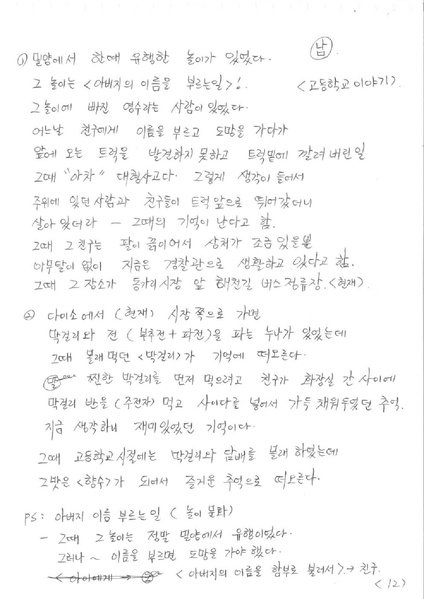 ① 밀양에서 한때 유행한 놀이가 있었다. 남
그 놀이는 <아버지의 이름을 부르는일>!. <고등학교이야기>
그놀이에 빠진 영수라는 사람이 있었다.
어느날 친구에게 이름을 부르고 도망을 가다가
앞에 오는 트럭을 발견하지 못하고 트럭밑에 깔려 버린일
그때 "아차" 대형사고다. 그렇게 생각이 들어서
주위에 있던 사람과 친구들이 트럭앞으로 뛰어갔더니
살아 있더라 - 그때의 기억이 난다고 함.
그때 그친구는 팔이 긁이어서 상처가 조금 있을뿐
아무탈이 없이 지금은 경찰관으로 생활하고 있다고 함.
그때 그 장소가 동가리시장 앞 해천길 버스정류장. <현재>
② 다이소에서 (현재) 시장쪽으로 가면
막걸리와 전 (부추전 + 파전)을 파는 누나가 있었는데
그때 몰래 먹던 <막걸리>가 기억에 떠오른다.
찐한 막걸리를 먼저 먹으려고 친구가 화장실 간 사이에
막걸리 반을 (주전자) 먹고 사이다를 넣어서 가득 채워두었던 추억.
지금 생각하니 재미있었던 기억이다.
그때 고등학교시절에는 막걸리와 담배를 몰래 하였는데
그맛은 <향수>가 되어서 즐거운 추억으로 떠오른다.
PS: 아버지 이름 부르는일 (놀이 문화)
- 그때 그 놀이는 정말 밀양에서 유행이었다.
그러나~ 이름을 부르면 도망을 가야 했다.
<아버지의 이름을 함부로 불러서>.→ 친구.
<12>